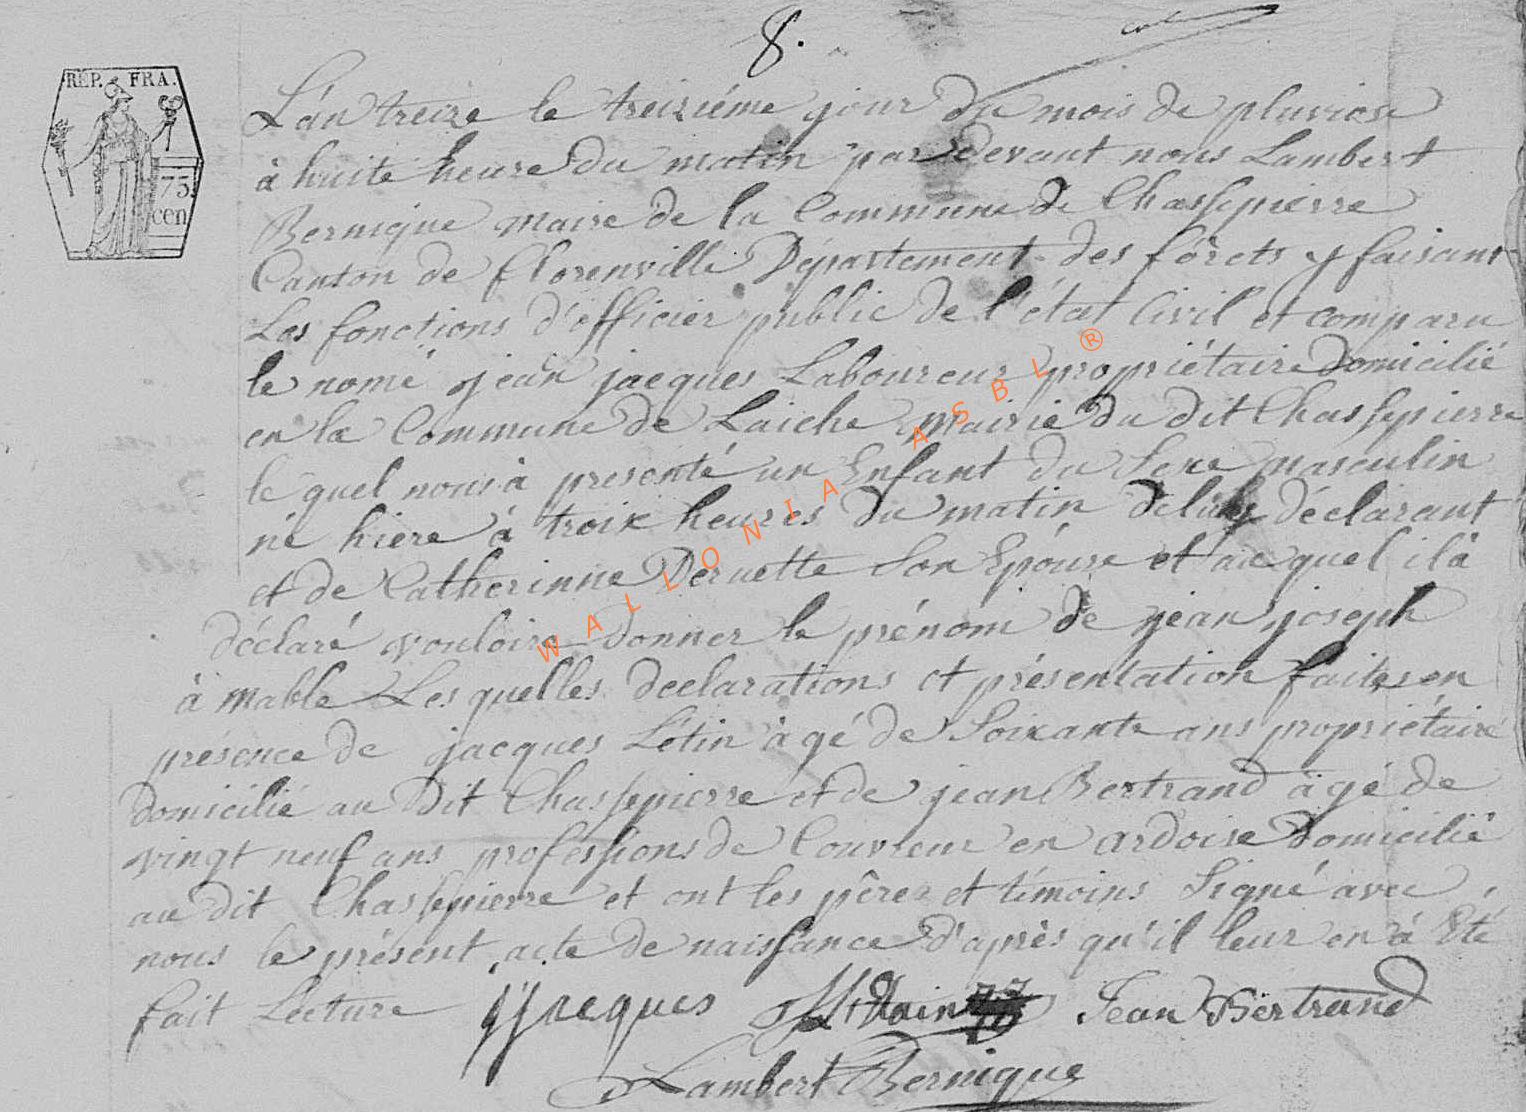 8.
REP. FRA.
75
cen
L'an treize le treiziéme jour du mois de pluviose
à huite heure du matin par devant nous Lambert
Bernique maire de la Commune de Chassepierre
Canton de florenville Département des forêts y faisant
Les fonctions d'officier public de l'état Civil et comparu
le nomé jean jacques Laboureur propriétaire Domicilié
en la Commune de Laiche mairie du dit Chassepierre
le quel nous à presenté un Enfant du Sexe masculin
né hiere à troix heures du matin de luy déclarant
et de Catherinne Deruette Son Epouse et au quel il à
déclaré vouloire donner le prénom de jean joseph
à mable Les quelles declarations et présentation faites en
présence de jacques Létin àgé de Soixante ans propriétaire
domicilié au Dit Chassepierre et de jean Bertrand àgé de
vingt neuf ans professions de Couvreur en ardoise Domicilié
au dit Chassepierre et ont les pêres et témoins Signé avec
nous le présent acte de naissance d'après qu'il leur en à Eté
fait Lecture jjacques Jean Bertrand
Lambert Bernique
WALLONIA ASBL ®